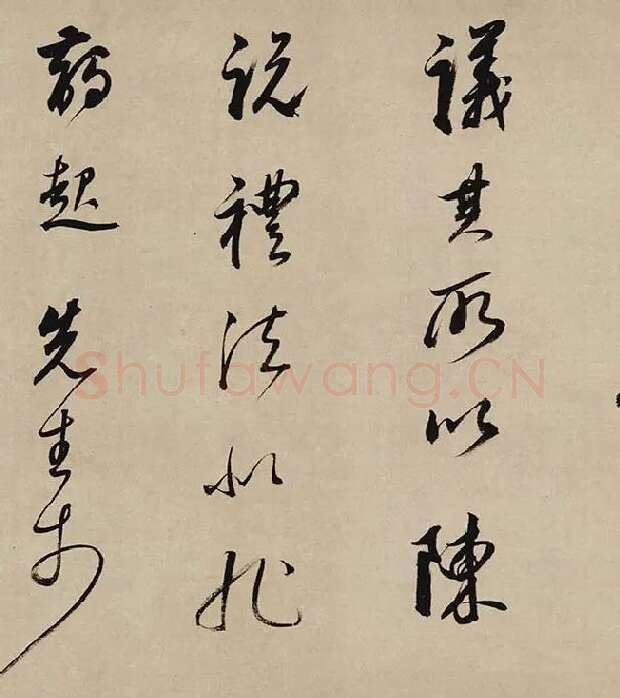 議其所以陳
說禮法是非
起先生於
Shufawang.CN